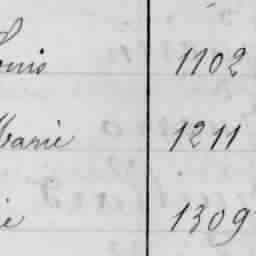 Louis 1102
Marie 1211
ie 1309